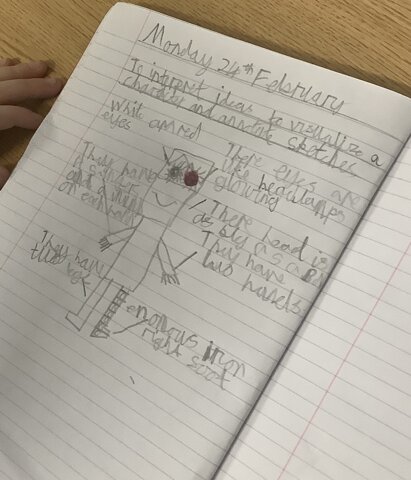 Monday 24th February
To interpret ideas to visualize a
character and annotate sketches
whit and red
eyes
There eyes are
like headlamps
glowing
They have
4 fingers
and a thum
on each hand
There head is
as big as a
They have
two hands
They have
two
legs
enomous iron
right foot